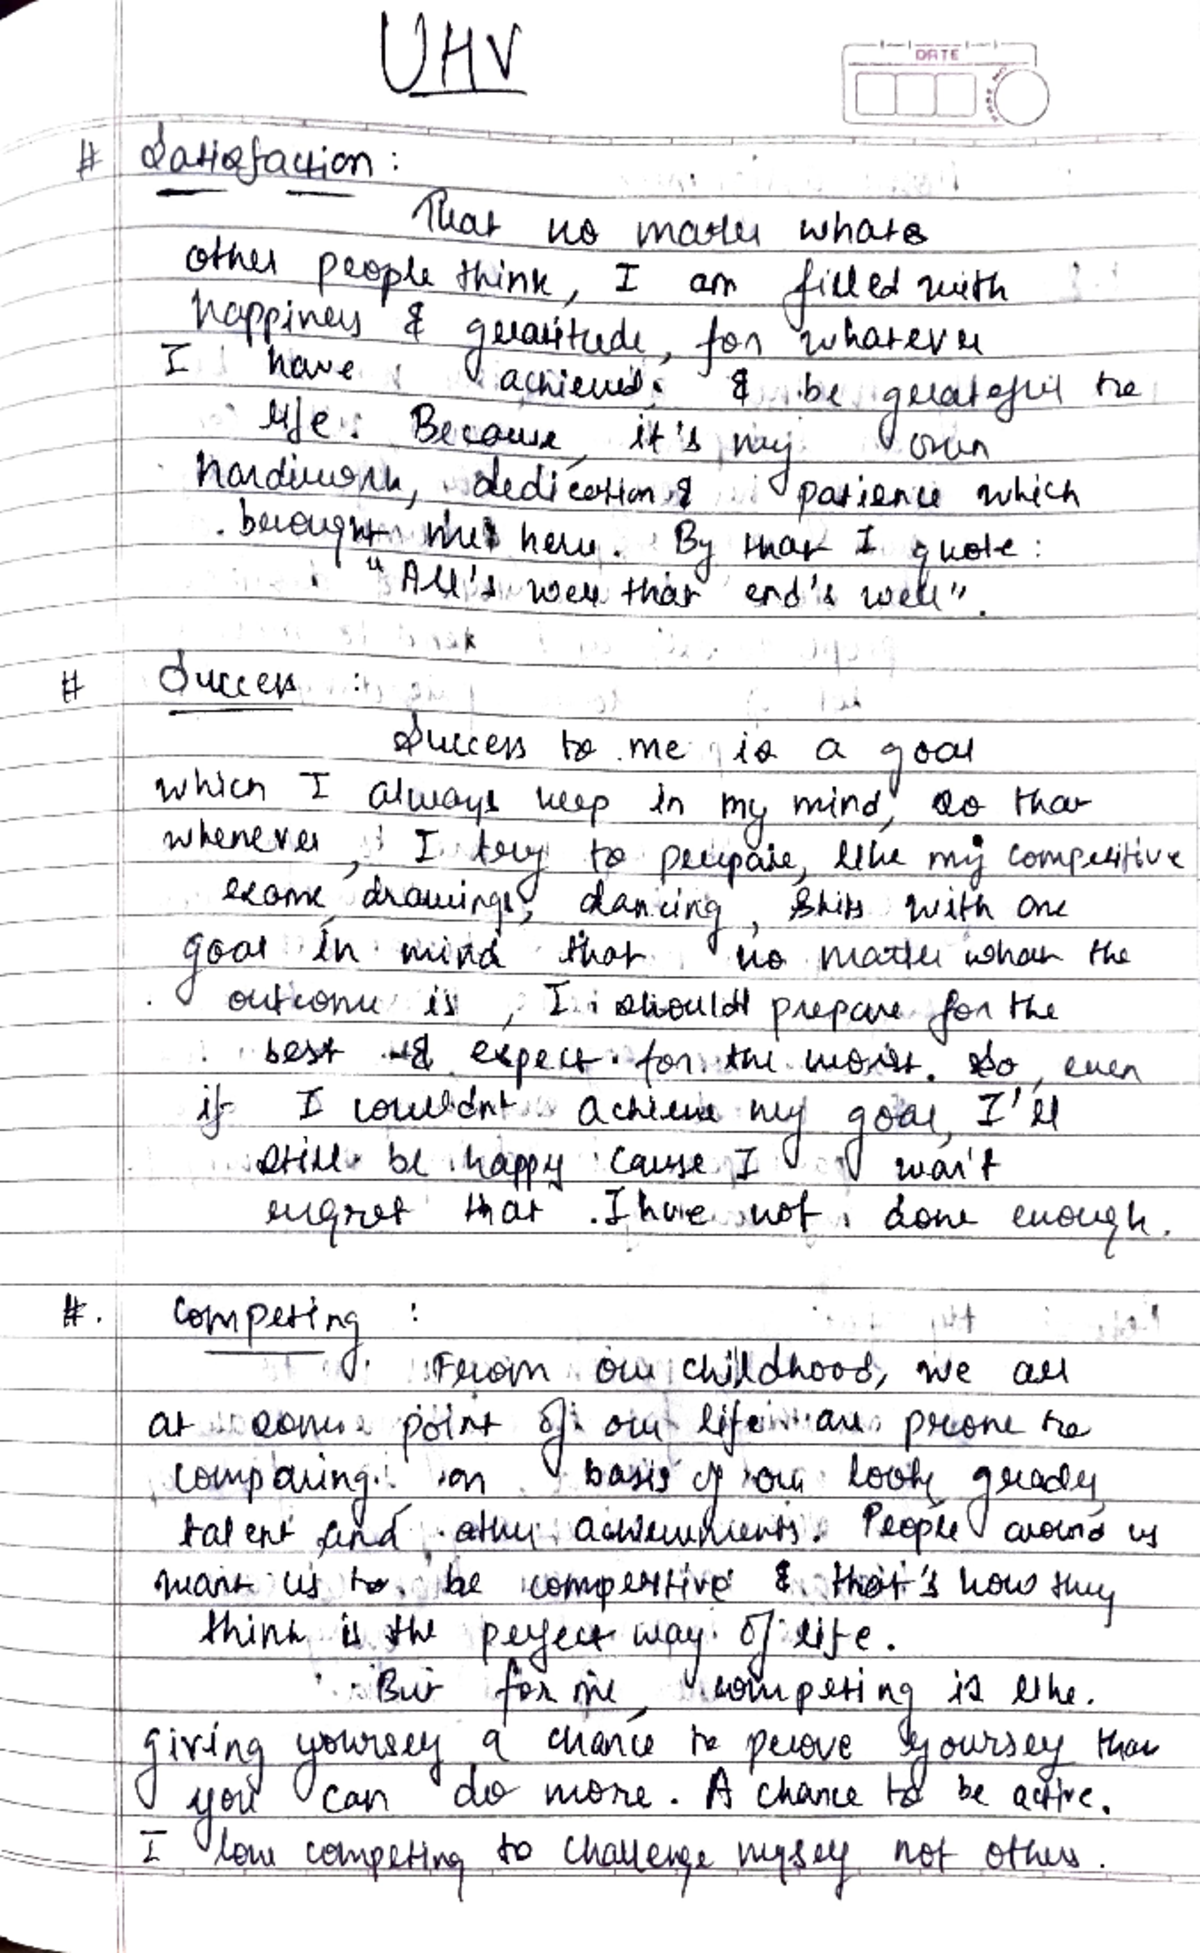 UHV
DATE
# Satisfaction :
That no matter what
other people think, I am filled with
happiness & gratitude, for whatever
I have achieved, & be grateful to
life. Because it's my own
hardiwork, dedication & patience which
brought me here. By that I quote :
"All's well that end's well".
# Success :
Success to me is a goal
which I always keep in my mind, so that
whenever, I try to prepare, like my competitive
exams, drawings, dancing, skits with one
goal in mind that no matter what the
outcome is, I should prepare for the
best & expect for the worst. So, even
if I couldn't achieve my goal, I'll
still be happy cause I won't
regret that I have not done enough.
#. Competing :
From our childhood, we all
at some point of our life are prone to
comparing on basis of our looks, grades,
talent and other achievements. People around us
want us to be competitive & that's how they
think is the perfect way of life.
But for me, competing is like
giving yourself a chance to prove yourself that
you can do more. A chance to be active.
I love competing to challenge myself not others.